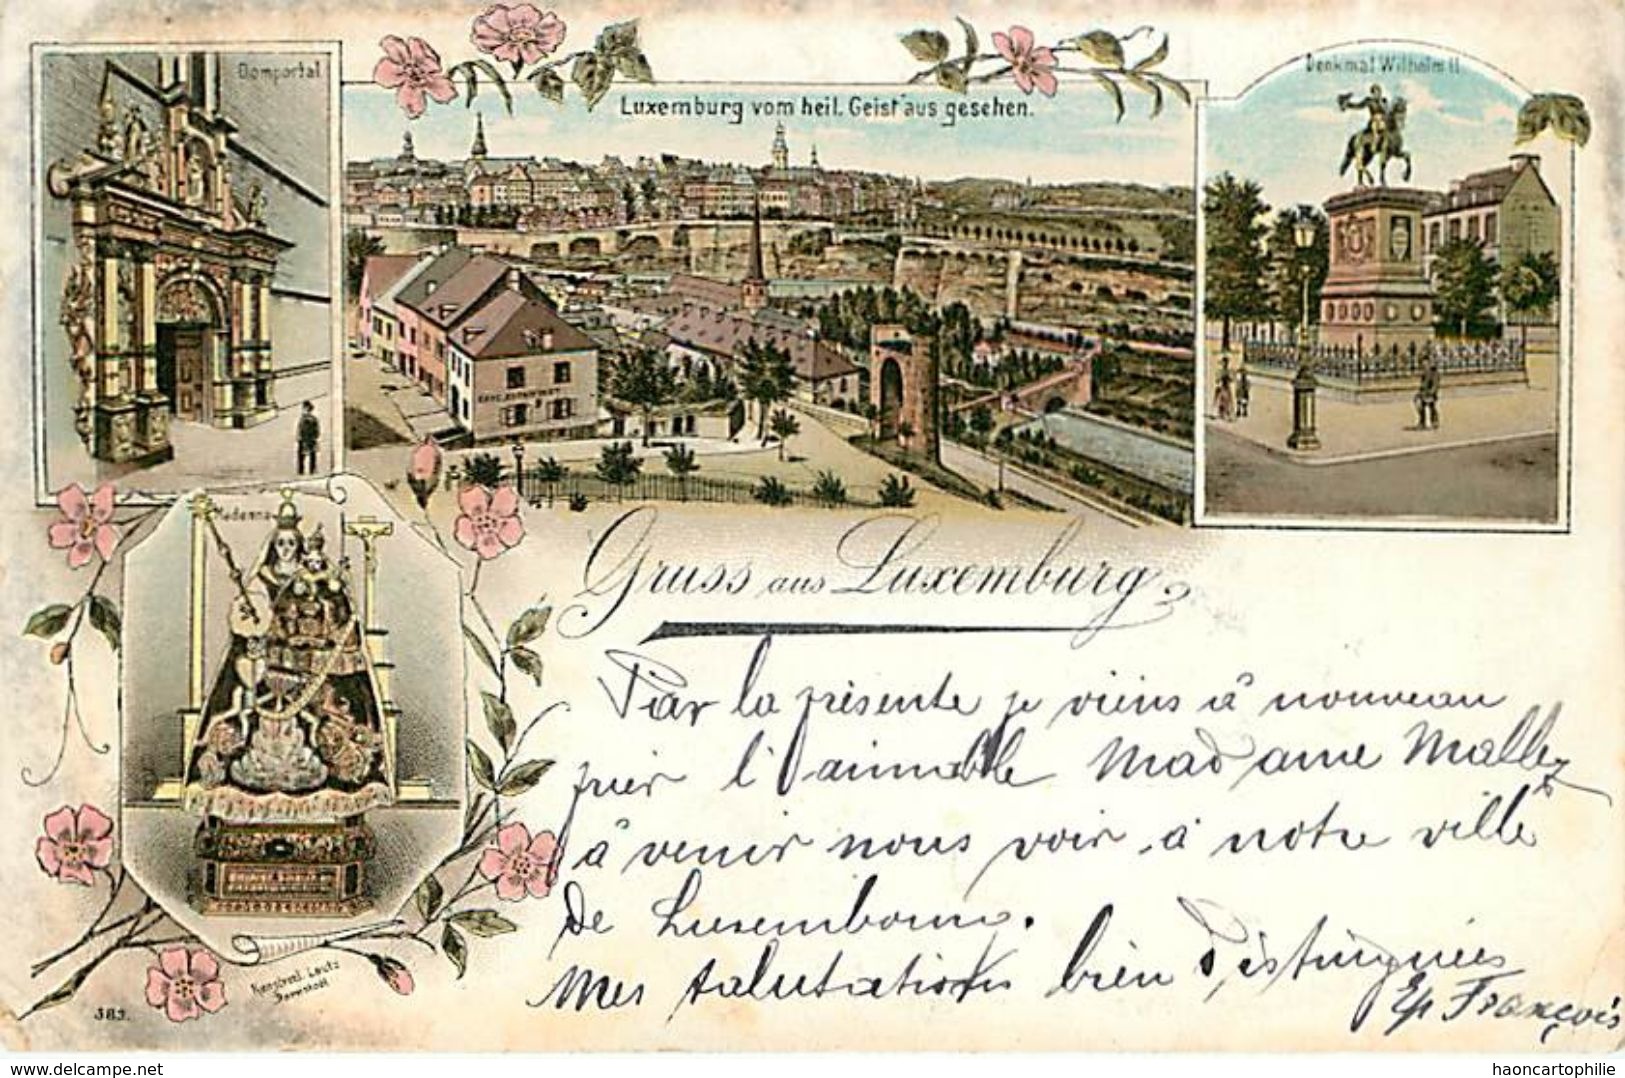 Domportal
Luxemburg vom heil. Geist aus gesehen.
Denkmal Wilhelm II
Madonna
Gruss aus Luxemburg
Par la présente je viens à nouveau
prier l'aimable Madame Mallez
à venir nous voir à notre ville
de Luxembourg.
Mes salutations bien distinguées
Ep François
Kunstverl. Lautz
Darmstadt
383.
www.delcampe.net
haoncartophilie